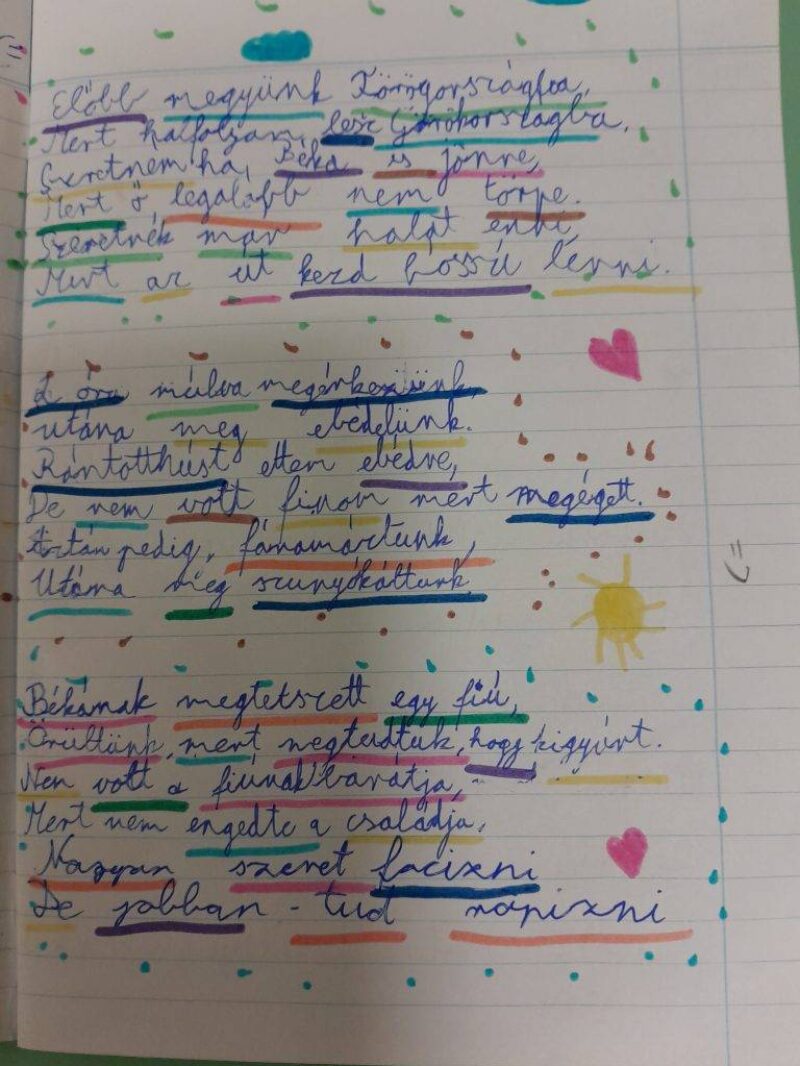 Előbb megyünk Törögországba,
Mert halfolyam lesz Görökországba,
Szeretném ha, Béka is jönne,
Mert ő legalább nem törpe.
Szeretnék már halat enni,
Mert az út kezd hosszú lenni.
2 óra múlva megérkezünk,
utána meg ebédelünk.
Rántotthúst ettem ebédre,
De nem volt finom mert megégett.
Aztán pedig, fánamásztunk,
Utána meg szunyókáltunk
Békának megtetszett egy fiú,
Örültünk, mert megtudtuk, hogy kigyúrt.
Nem volt a fiúnak barátja,
Mert nem engedte a családja,
Nagyon szeret facizni
De jobban - tud rapizni